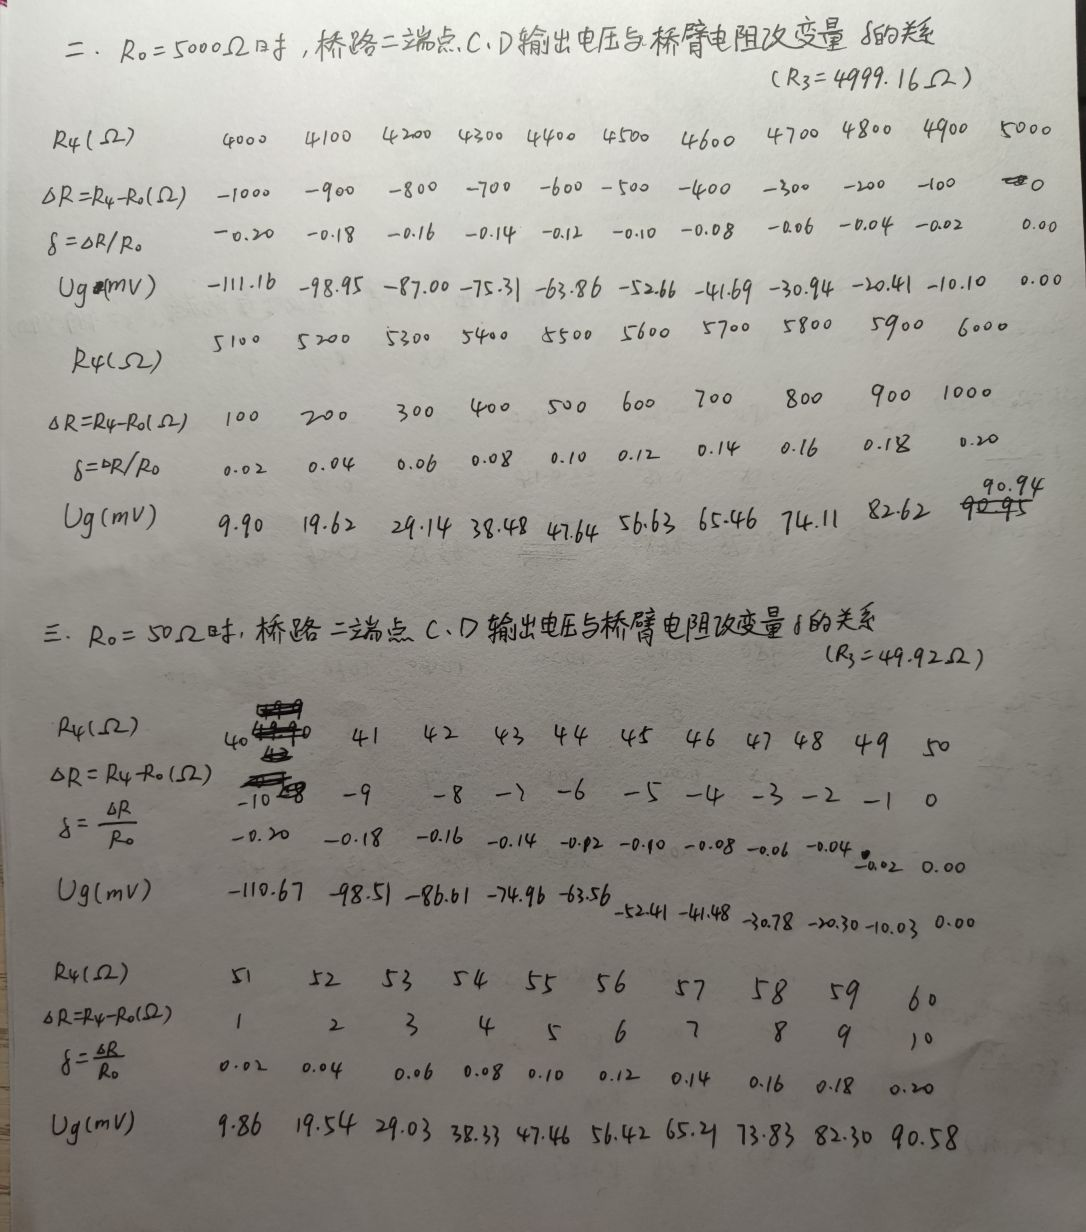 二. R₀=5000Ω时,桥路二端点C、D输出电压与桥臂电阻改变量δ的关系
(R₃=4999.16Ω)
R₄(Ω) 4000 4100 4200 4300 4400 4500 4600 4700 4800 4900 5000
ΔR=R₄-R₀(Ω) -1000 -900 -800 -700 -600 -500 -400 -300 -200 -100 0
δ=ΔR/R₀ -0.20 -0.18 -0.16 -0.14 -0.12 -0.10 -0.08 -0.06 -0.04 -0.02 0.00
Ug(mV) -111.16 -98.95 -87.00 -75.31 -63.86 -52.66 -41.69 -30.94 -20.41 -10.10 0.00
R₄(Ω) 5100 5200 5300 5400 5500 5600 5700 5800 5900 6000
ΔR=R₄-R₀(Ω) 100 200 300 400 500 600 700 800 900 1000
δ=ΔR/R₀ 0.02 0.04 0.06 0.08 0.10 0.12 0.14 0.16 0.18 0.20
Ug(mV) 9.90 19.62 29.14 38.48 47.64 56.63 65.46 74.11 82.62 90.94
三. R₀=50Ω时,桥路二端点C、D输出电压与桥臂电阻改变量δ的关系
(R₃=49.92Ω)
R₄(Ω) 40 41 42 43 44 45 46 47 48 49 50
ΔR=R₄-R₀(Ω) -10 -9 -8 -7 -6 -5 -4 -3 -2 -1 0
δ=ΔR/R₀ -0.20 -0.18 -0.16 -0.14 -0.12 -0.10 -0.08 -0.06 -0.04 -0.02 0.00
Ug(mV) -110.67 -98.51 -86.61 -74.96 -63.56 -52.41 -41.48 -30.78 -20.30 -10.03 0.00
R₄(Ω) 51 52 53 54 55 56 57 58 59 60
ΔR=R₄-R₀(Ω) 1 2 3 4 5 6 7 8 9 10
δ=ΔR/R₀ 0.02 0.04 0.06 0.08 0.10 0.12 0.14 0.16 0.18 0.20
Ug(mV) 9.86 19.54 29.03 38.33 47.46 56.42 65.21 73.83 82.30 90.58